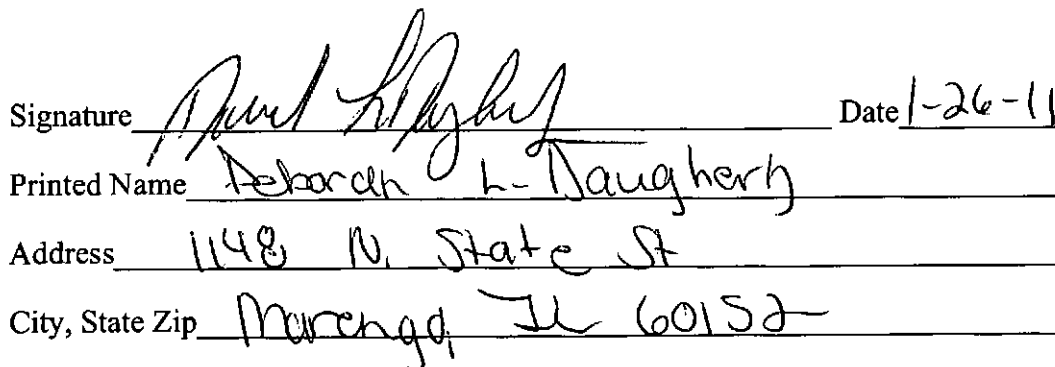 Signature Date 1-26-11
Printed Name Deborah L. Daugherty
Address 1148 N. State St
City, State Zip Marengo, IL 60152